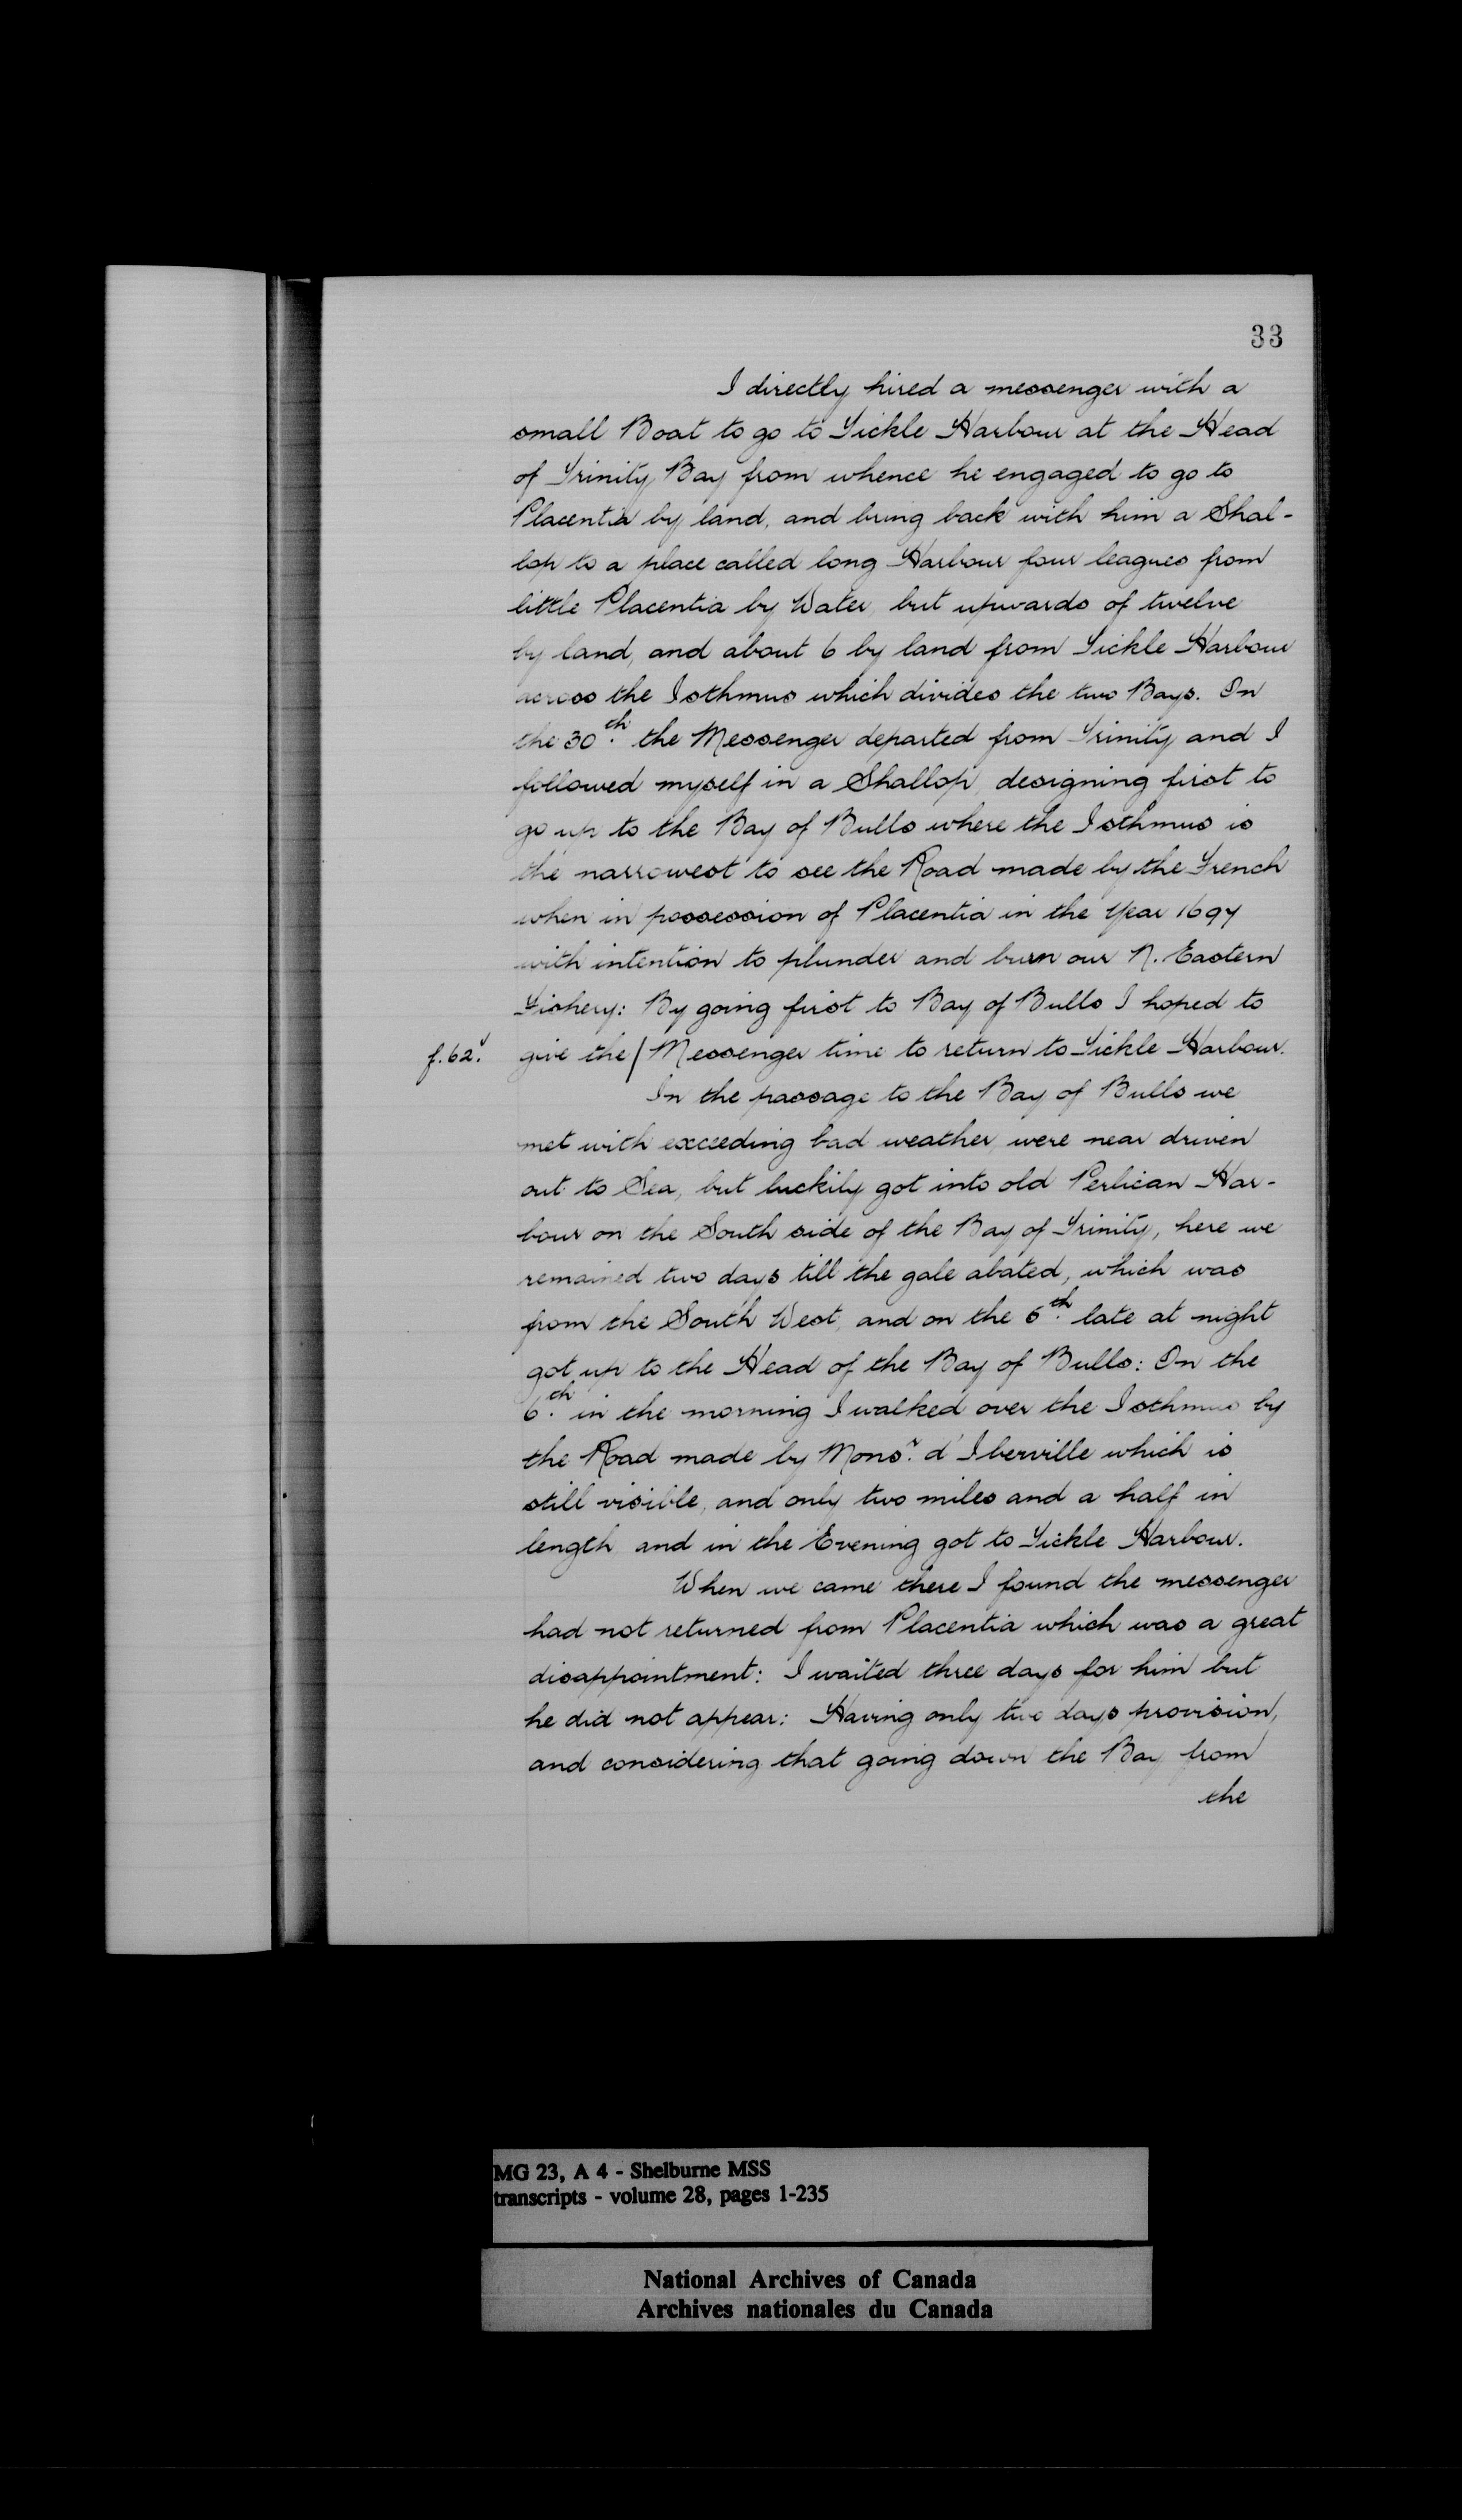 33
I directly hired a messenger with a
small Boat to go to Tickle Harbour at the Head
of Trinity Bay from whence he engaged to go to
Placentia by land, and bring back with him a Shal-
lop to a place called long Harbour four leagues from
little Placentia by Water, but upwards of twelve
by land, and about 6 by land from Tickle Harbour
across the Isthmus which divides the two Bays. On
the 30th. the Messenger departed from Trinity and I
followed myself in a Shallop, designing first to
go up to the Bay of Bulls where the Isthmus is
the narrowest to see the Road made by the French
when in possession of Placentia in the Year 1697
with intention to plunder and burn our N. Eastern
Fishery: By going first to Bay of Bulls I hoped to
f.62v. give the / Messenger time to return to Tickle Harbour.
In the passage to the Bay of Bulls we
met with exceeding bad weather, were near driven
out to Sea, but luckily got into old Perlican Har-
bour on the South side of the Bay of Trinity, here we
remained two days till the gale abated, which was
from the South West, and on the 5th. late at night
got up to the Head of the Bay of Bulls: On the
6th. in the morning I walked over the Isthmus by
the Road made by Monsr. d'Iberville which is
still visible, and only two miles and a half in
length, and in the Evening got to Tickle Harbour.
When we came there I found the messenger
had not returned from Placentia which was a great
disappointment: I waited three days for him but
he did not appear: Having only two days provision,
and considering that going down the Bay from
the
MG 23, A 4 - Shelburne MSS
transcripts - volume 28, pages 1-235
National Archives of Canada
Archives nationales du Canada